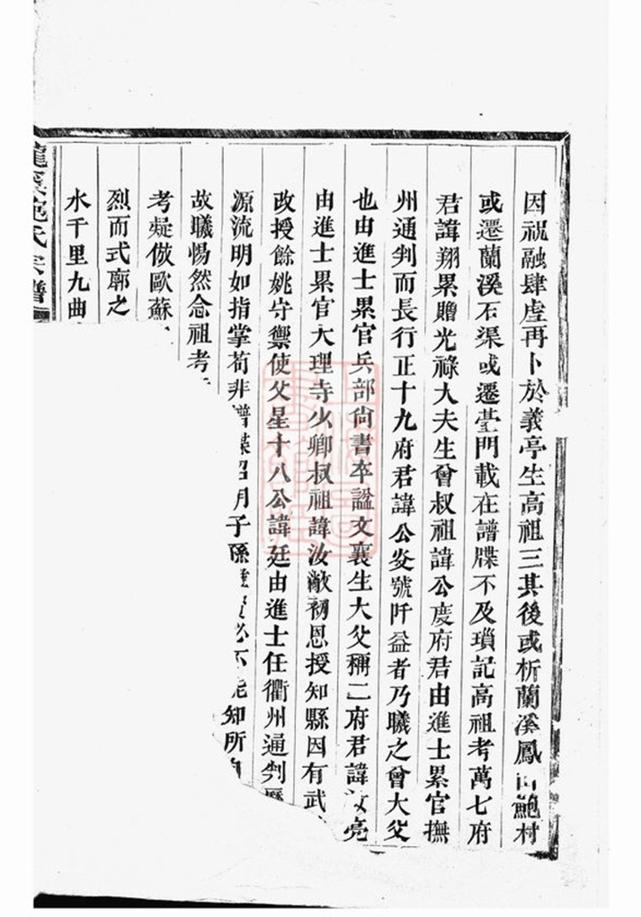 因祝融肆虐再卜於義亭生高祖三其後或析蘭溪鳳山鮑村
或遷蘭溪石渠或遷臺門載在譜牒不及瑣記高祖考萬七府
君諱翔累贈光祿大夫生曾叔祖諱公度府君由進士累官撫
州通判而長行正十九府君諱公炎號阡益者乃曦之曾大父
也由進士累官兵部尚書卒謚文襄生大父稱二府君諱汝亮
由進士累官大理寺少卿叔祖諱汝敵初恩授知縣因有武
改授餘姚守禦使父星十八公諱廷由進士任衢州通判歷
源流明如指掌苟非譜牒昭明子孫
必不能知所自
故曦惕然念祖考
考疑倣歐蘇
烈而式廓之
水千里九曲
龍溪鮑氏宗譜